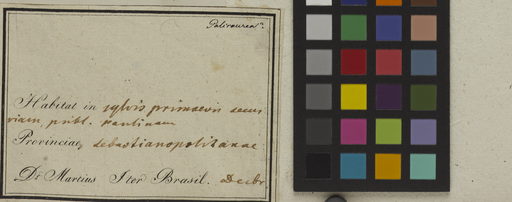 Palicourea
Habitat in sylvis primaevis secus
viam publ.
Provinciae sebastianopolitanae
Dr Martius Iter Brasil. Decbr